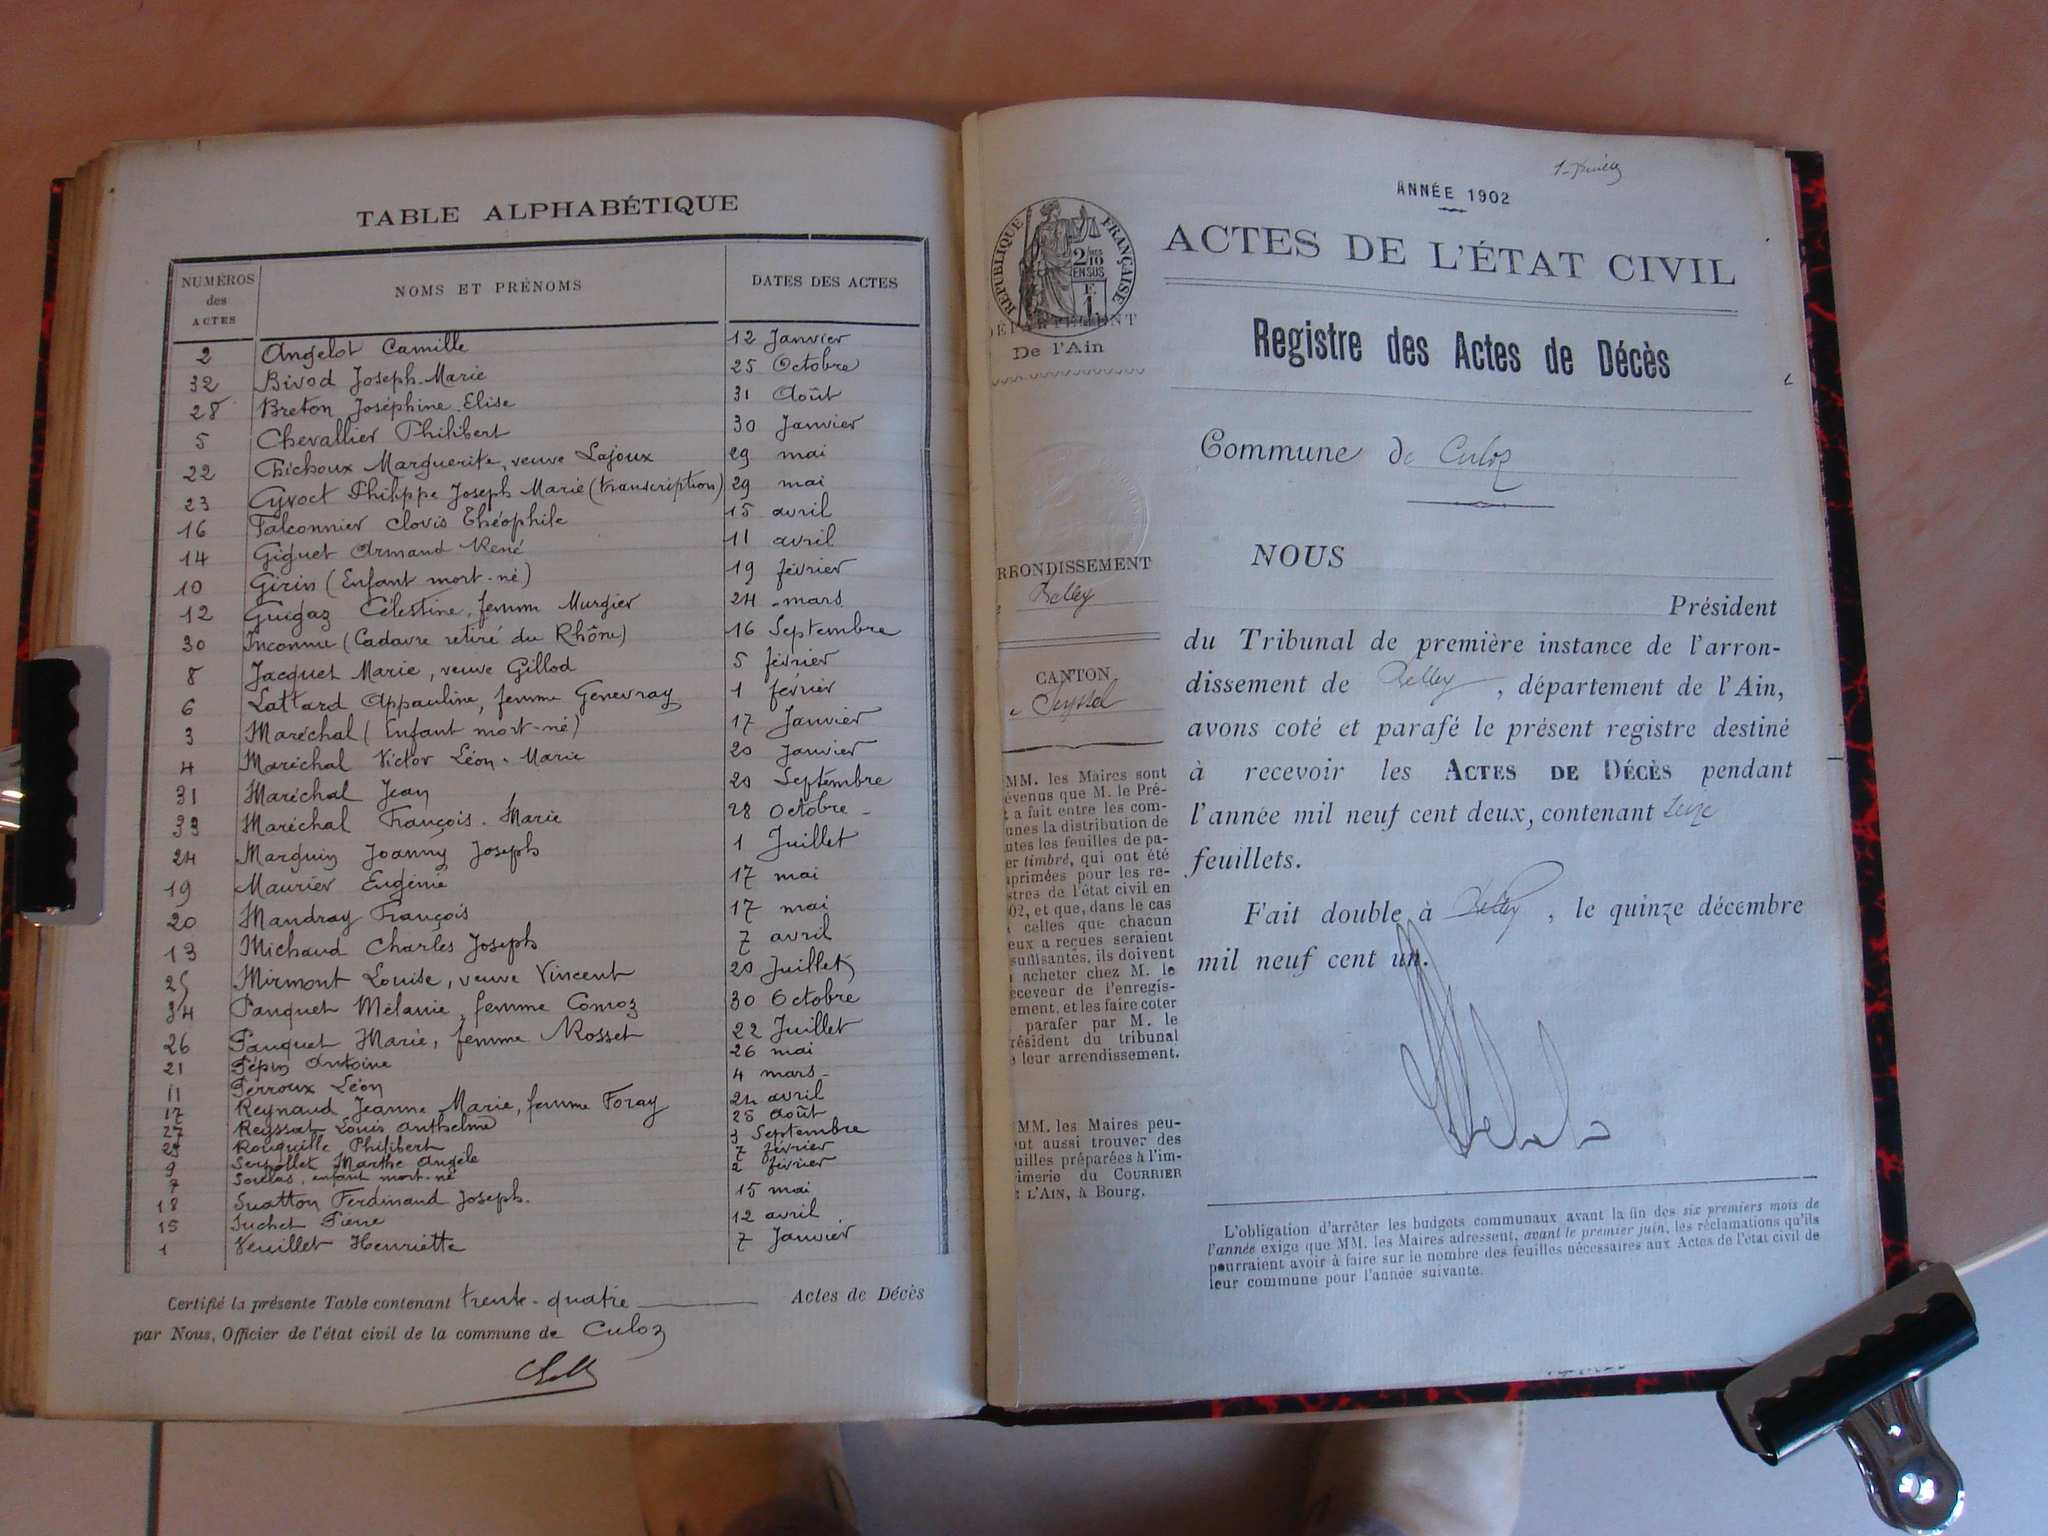 TABLE ALPHABÉTIQUE
NUMÉROS des ACTES NOMS ET PRÉNOMS DATES DES ACTES
2 Angelot Camille 12 Janvier
32 Bivod Joseph-Marie 25 Octobre
28 Breton Joséphine Elise 31 Août
5 Chevallier Philibert 30 Janvier
22 Chichoux Marguerite, veuve Lajoux 29 mai
23 Cyvoct Philippe Joseph Marie (transcription) 29 mai
16 Falconnier Clovis Théophile 15 avril
14 Giguet Armand René 11 avril
10 Girin (Enfant mort-né) 19 février
12 Guigaz Célestine, femme Murgier 24 mars
30 Inconnu (Cadavre retiré du Rhône) 16 Septembre
8 Jacquet Marie, veuve Gillod 5 février
6 Lattard Appauline, femme Genevray 1 février
3 Maréchal (Enfant mort-né) 17 Janvier
4 Maréchal Victor Léon-Marie 20 Janvier
31 Maréchal Jean 20 Septembre
33 Maréchal François-Marie 28 Octobre
24 Marguin Joanny Joseph 1 Juillet
19 Maurier Eugénie 17 mai
20 Mandray François 17 mai
13 Michaud Charles Joseph 7 avril
25 Mirmont Louise, veuve Vincent 20 Juillet
34 Panquet Mélanie, femme Comoz 30 Octobre
26 Pauquet Marie, femme Rosset 22 Juillet
21 Pépin Antoine 26 mai
11 Perroux Léon 4 mars
17 Reynaud Jeanne Marie, femme Foray 24 avril
27 Reyssat Louis Anthelme 28 août
29 Rouquille Philibert 3 Septembre
9 Serpollet Marthe Angèle 7 février
7 enfant mort-né 2 février
18 Suatton Ferdinand Joseph. 15 mai
15 Suchet Pierre 12 avril
1 Veuillet Henriette 7 Janvier
Certifié la présente Table contenant trente-quatre Actes de Décès
par Nous, Officier de l'état civil de la commune de Culoz
ANNÉE 1902
RÉPUBLIQUE FRANÇAISE
2/10 EN SUS
F. 1
DÉPARTEMENT
De l'Ain
ACTES DE L'ÉTAT CIVIL
Registre des Actes de Décès
Commune de Culoz
RRONDISSEMENT
Belley
CANTON
Seyssel
MM. les Maires sont
évenus que M. le Pré-
t a fait entre les com-
unes la distribution de
utes les feuilles de pa-
er timbré, qui ont été
primées pour les re-
stres de l'état civil en
02, et que, dans le cas
celles que chacun
eux a reçues seraient
suffisantes, ils doivent
acheter chez M. le
eceveur de l'enregis-
ement, et les faire coter
parafer par M. le
résident du tribunal
e leur arrondissement.
MM. les Maires peu-
nt aussi trouver des
uilles préparées à l'im-
imerie du COURRIER
L'AIN, à Bourg.
NOUS
Président
du Tribunal de première instance de l'arron-
dissement de Belley, département de l'Ain,
avons coté et parafé le présent registre destiné
à recevoir les ACTES DE DÉCÈS pendant
l'année mil neuf cent deux, contenant seize
feuillets.
Fait double à Belley, le quinze décembre
mil neuf cent un.
L'obligation d'arrêter les budgets communaux avant la fin des six premiers mois de
l'année exige que MM. les Maires adressent, avant le premier juin, les réclamations qu'ils
pourraient avoir à faire sur le nombre des feuilles nécessaires aux Actes de l'état civil de
leur commune pour l'année suivante.